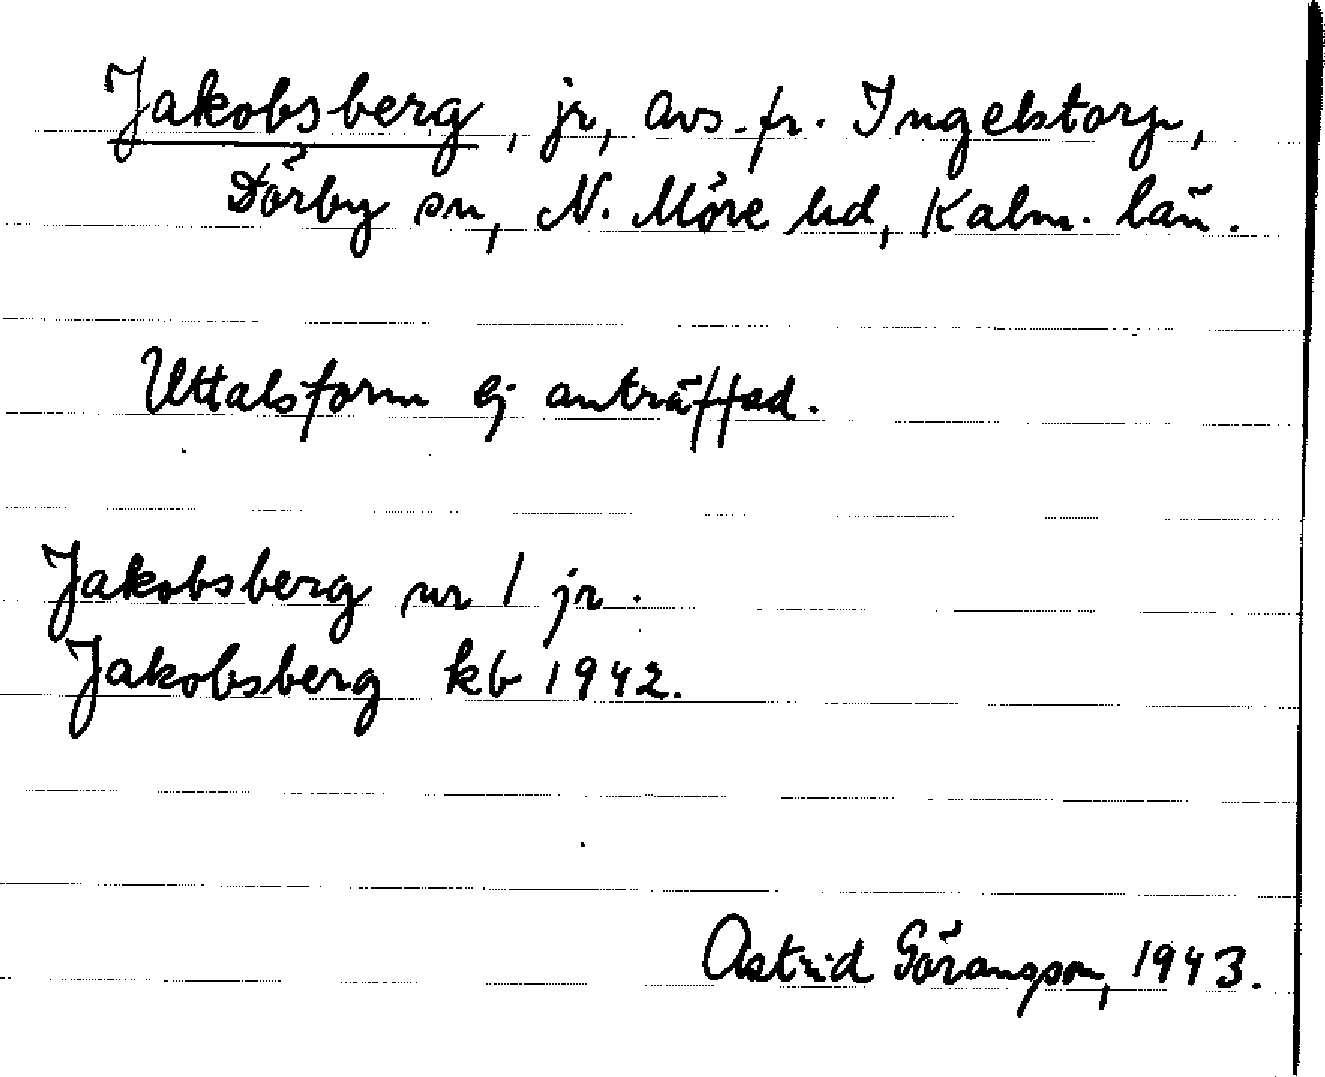 Jakobsberg, jr, avs. fr. Ingelstorp,
Dörby sn, N. Möre hd, Kalm. län.
Uttalsform ej anträffad.
Jakobsberg nr 1 jr.
Jakobsberg kb 1942.
Astrid Göransson, 1943.